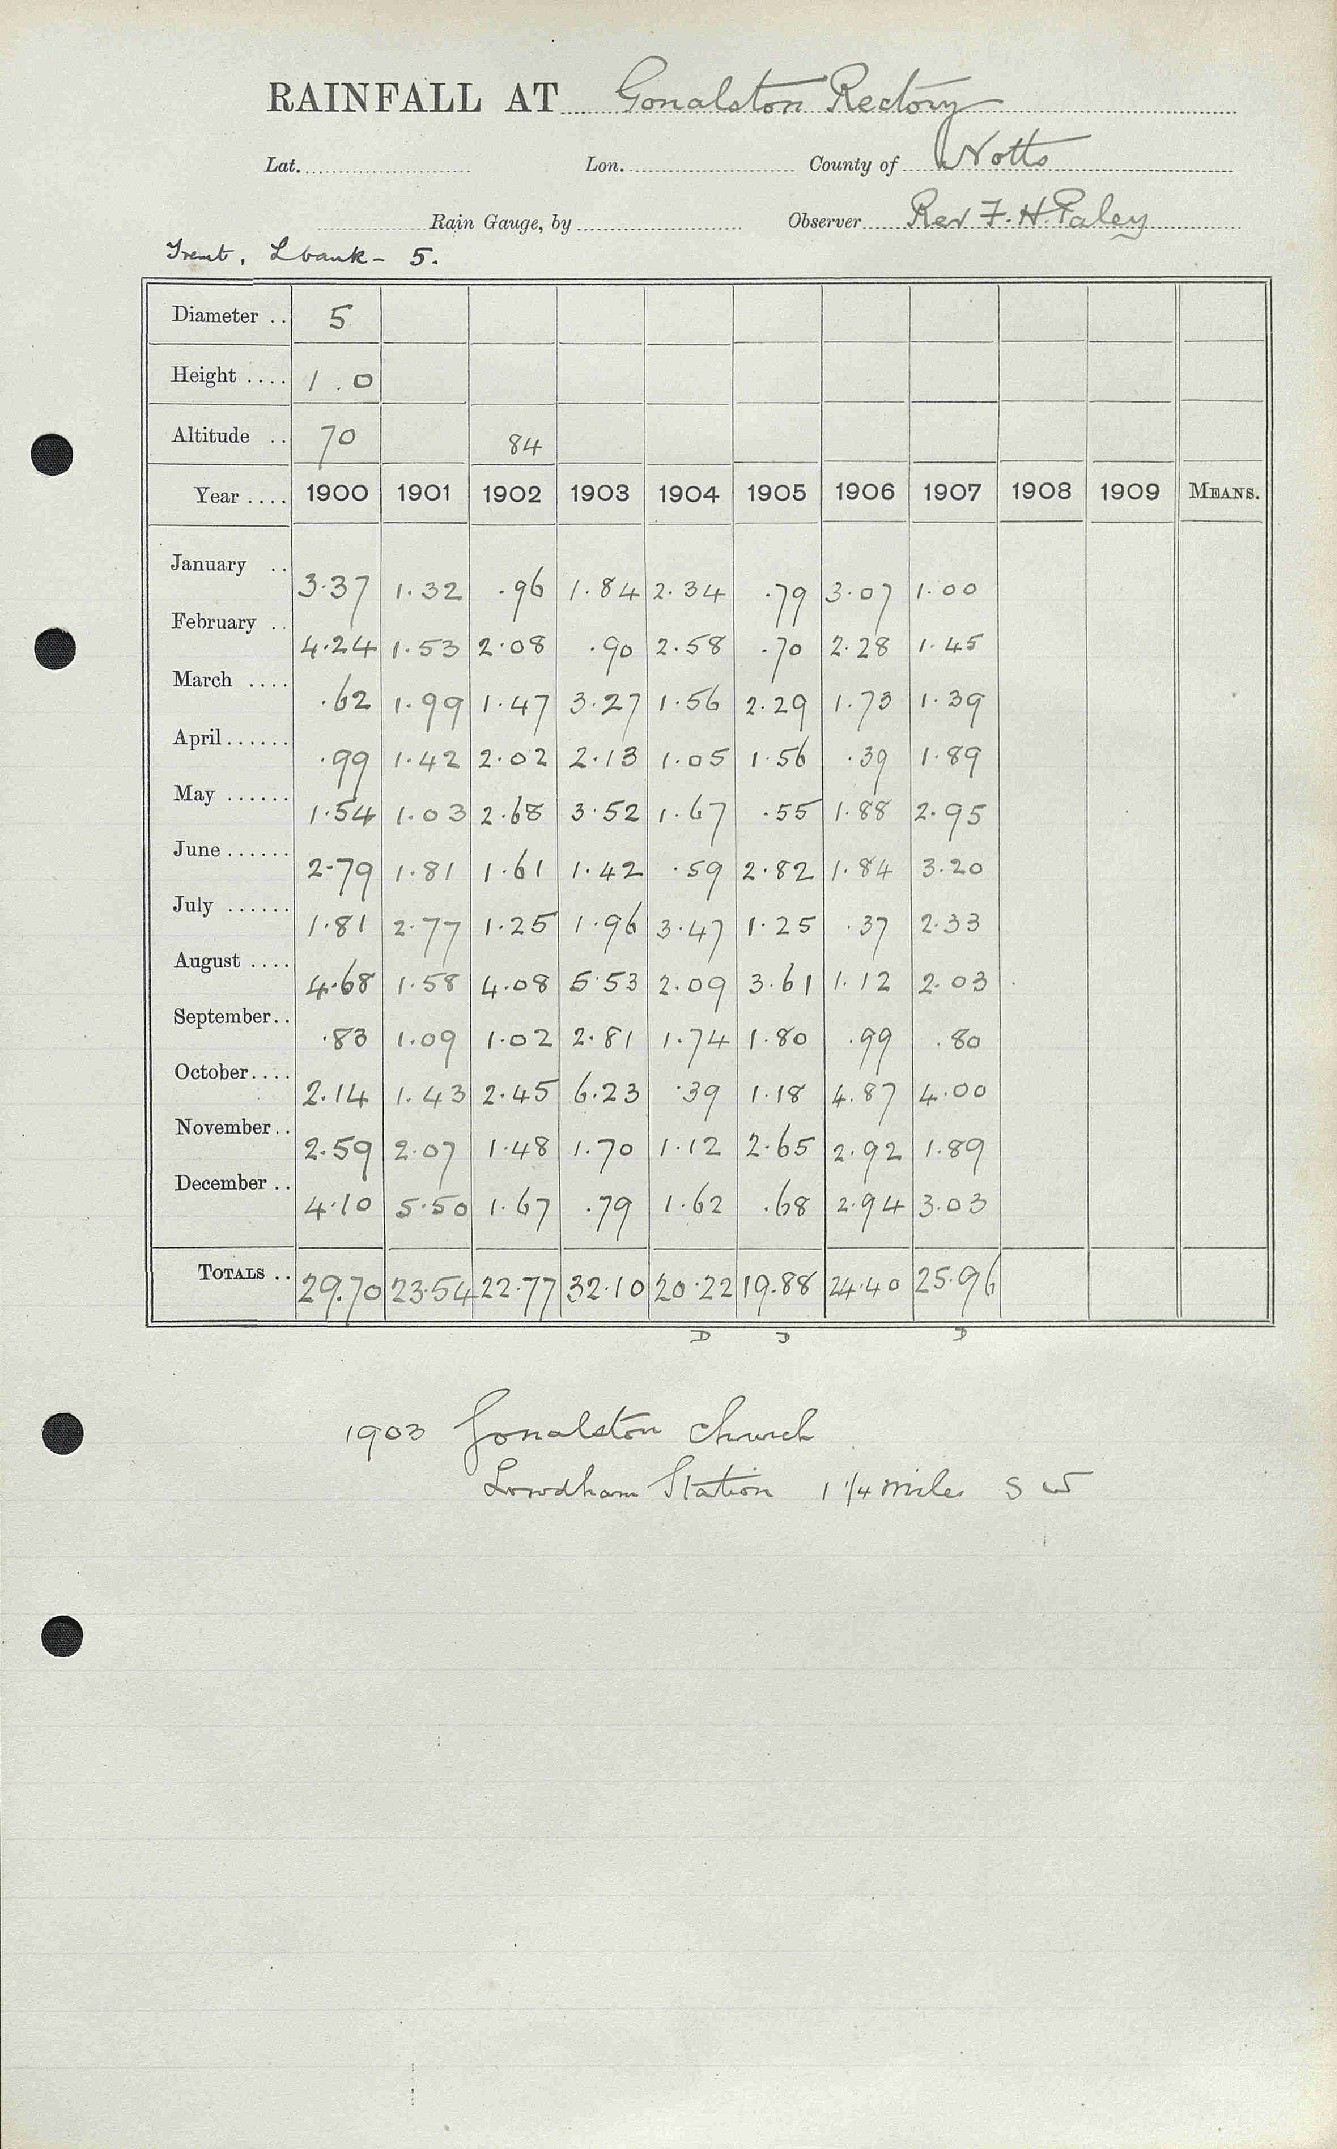 RAINFALL AT Gonalston Rectory
Lat. Lon. County of Notts
Rain Gauge, by Observer Rev F. H. Paley
Trent, L bank - 5.
Diameter .. 5
Height .... 1.0
Altitude .. 70 84
Year .... 1900 1901 1902 1903 1904 1905 1906 1907 1908 1909 MEANS.
January .. 3.37 1.32 .96 1.84 2.34 .79 3.07 1.00
February .. 4.24 1.53 2.08 .90 2.58 .70 2.28 1.45
March .... .62 1.99 1.47 3.27 1.56 2.29 1.73 1.39
April...... .99 1.42 2.02 2.13 1.05 1.56 .39 1.89
May ...... 1.54 1.03 2.68 3.52 1.67 .55 1.88 2.95
June ...... 2.79 1.81 1.61 1.42 .59 2.82 1.84 3.20
July ...... 1.81 2.77 1.25 1.96 3.47 1.25 .37 2.33
August .... 4.68 1.58 4.08 5.53 2.09 3.61 1.12 2.03
September.. .83 1.09 1.02 2.81 1.74 1.80 .99 .80
October.... 2.14 1.43 2.45 6.23 .39 1.18 4.87 4.00
November.. 2.59 2.07 1.48 1.70 1.12 2.65 2.92 1.89
December .. 4.10 5.50 1.67 .79 1.62 .68 2.94 3.03
TOTALS .. 29.70 23.54 22.77 32.10 20.22 19.88 24.40 25.96
D D D
1903 Gonalston Church
Lowdham Station 1 1/4 miles S W